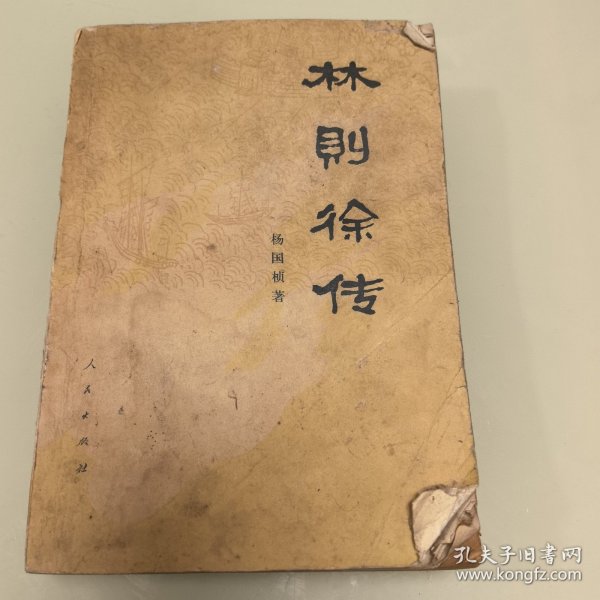 林則徐传
杨国桢著
人民出版社
孔夫子旧书网
www.kongfz.com